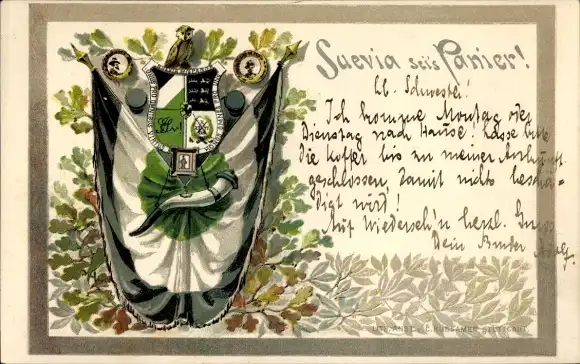 Suevia sei's Panier!
lb. Schwester!
Ich komme Montag oder
Dienstag nach Hause! Lasse bitte
die Koffer bis zu meiner Ankunft
geschlossen, damit nichts beschä-
digt wird!
Auf Wiederseh'n herzl. Gruss
Dein Bruder Adolf.
STUTTGART